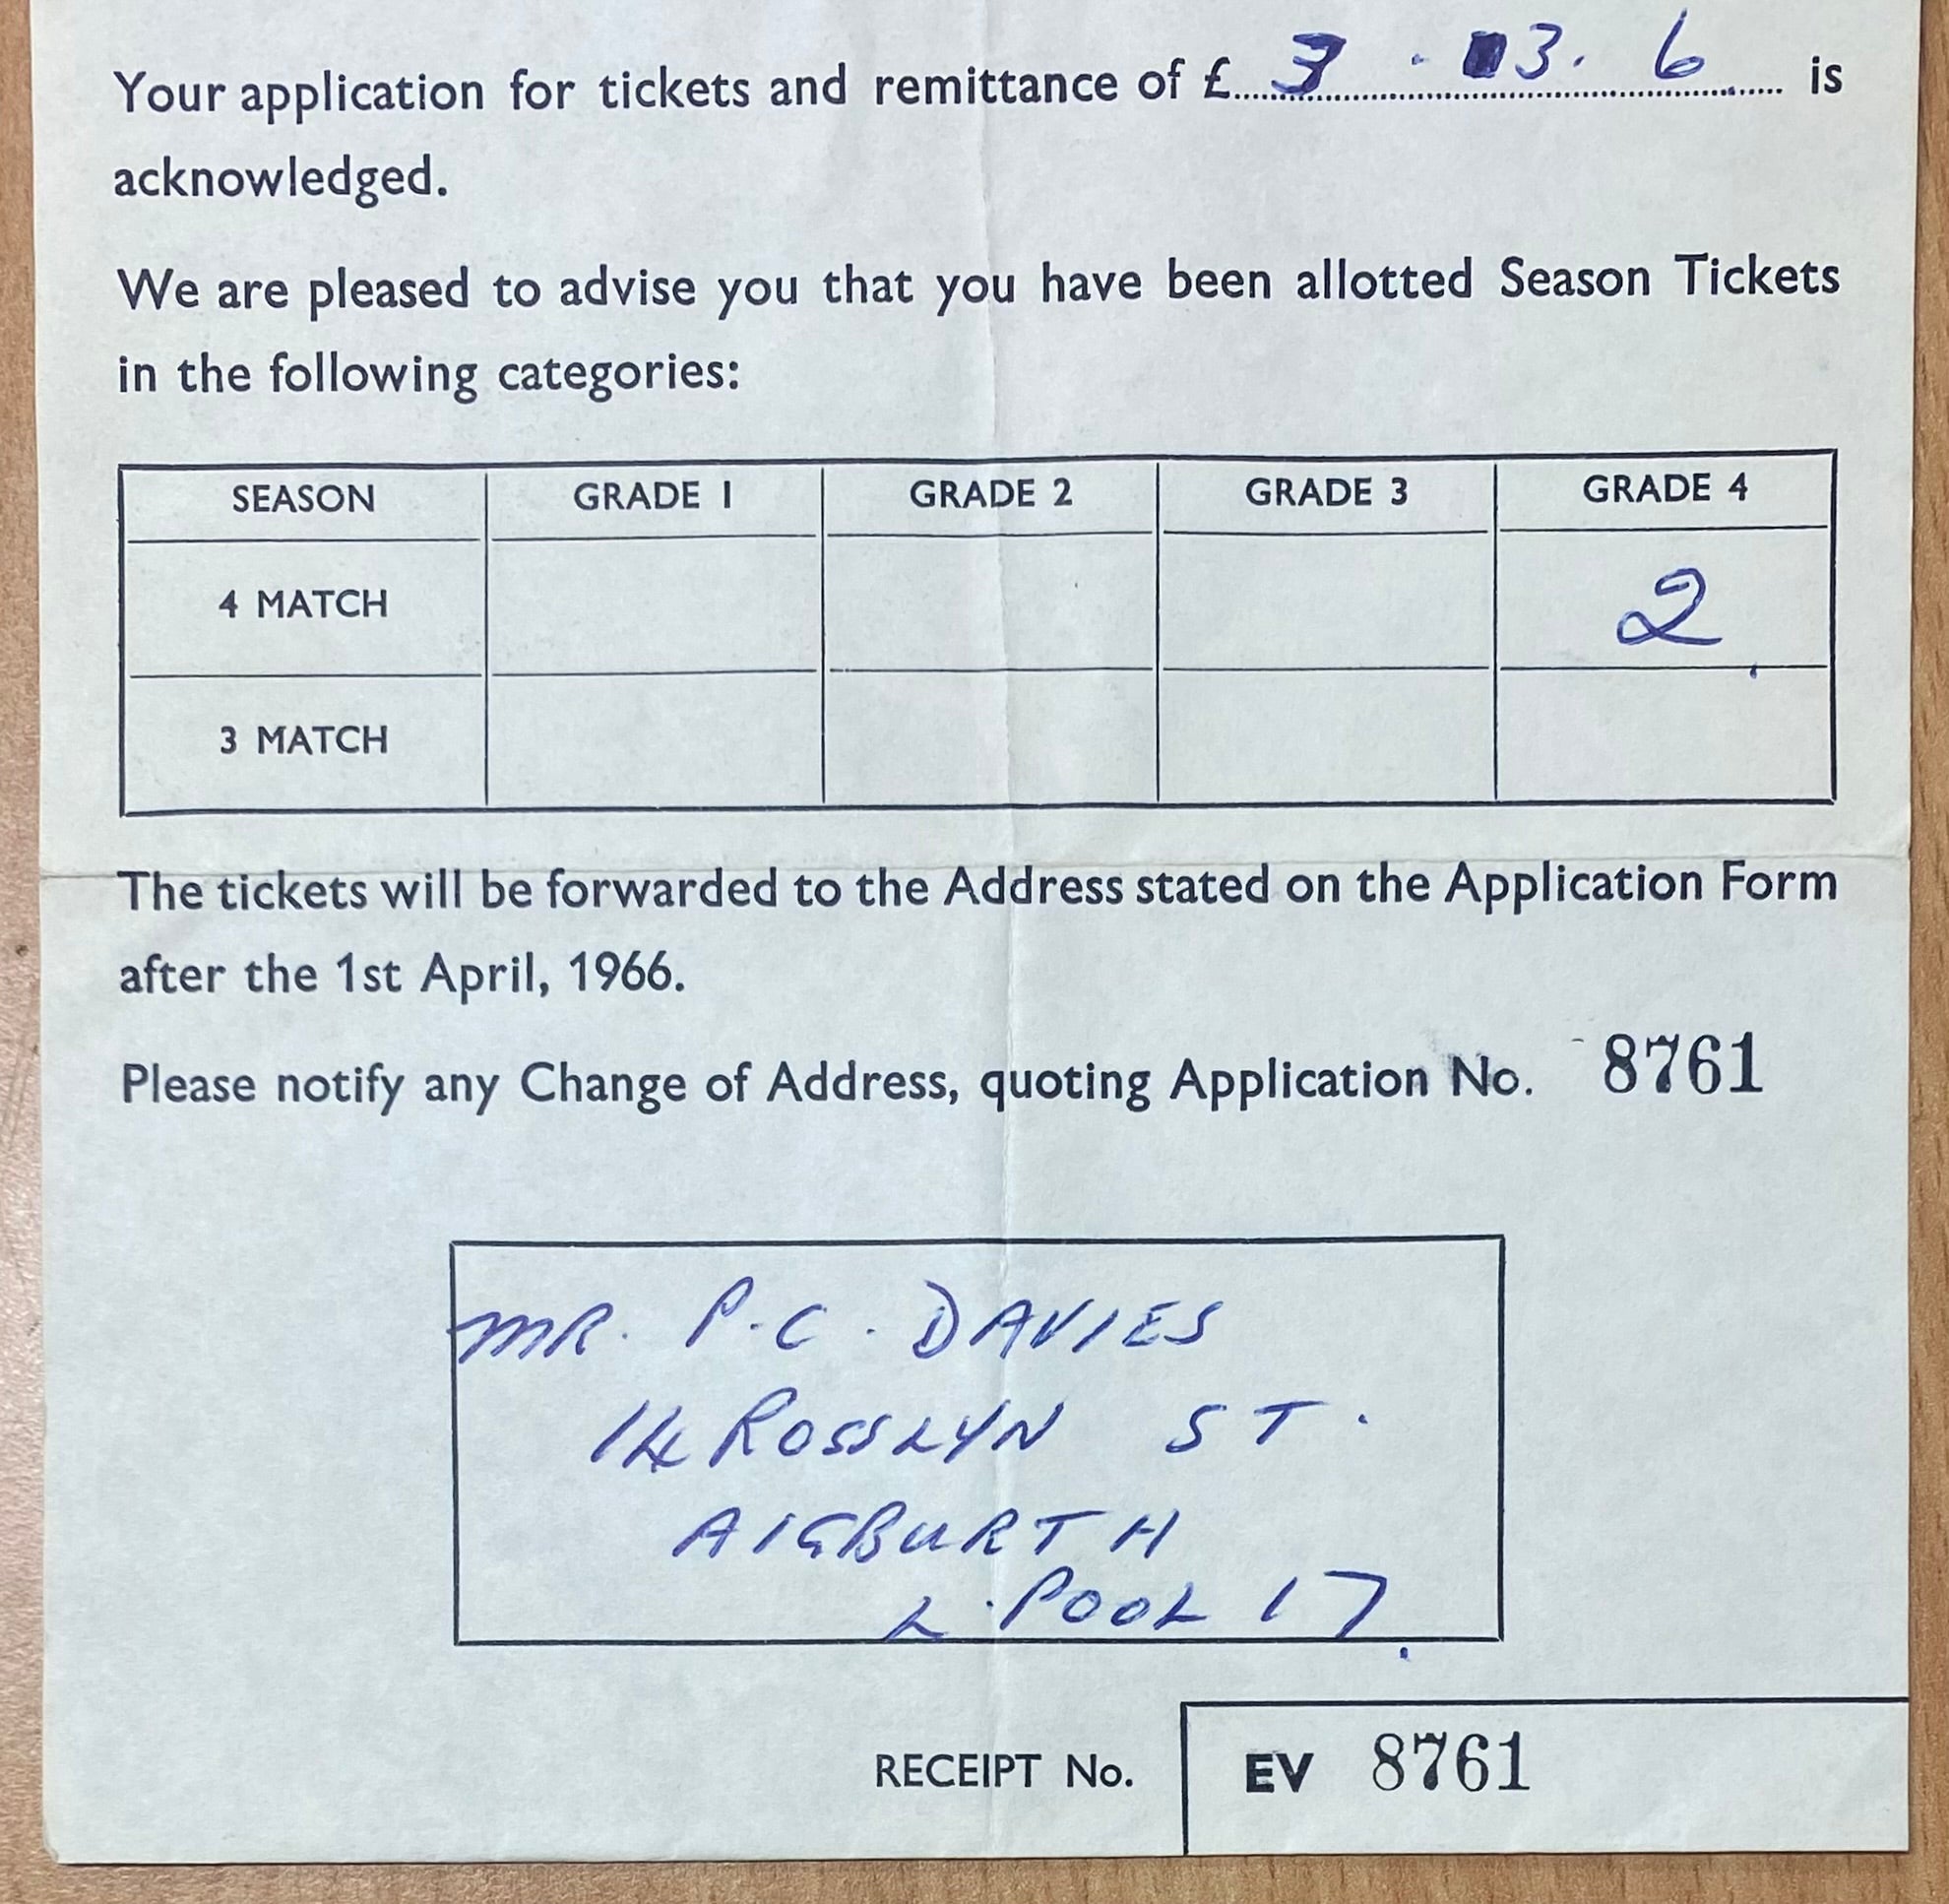 Your application for tickets and remittance of £ 3 . 3 . 6 is
acknowledged.
We are pleased to advise you that you have been allotted Season Tickets
in the following categories:
SEASON GRADE 1 GRADE 2 GRADE 3 GRADE 4
4 MATCH 2
3 MATCH
The tickets will be forwarded to the Address stated on the Application Form
after the 1st April, 1966.
Please notify any Change of Address, quoting Application No. 8761
MR. P.C. DAVIES
14 ROSSLYN ST.
AIGBURTH
L.POOL 17.
RECEIPT No. EV 8761